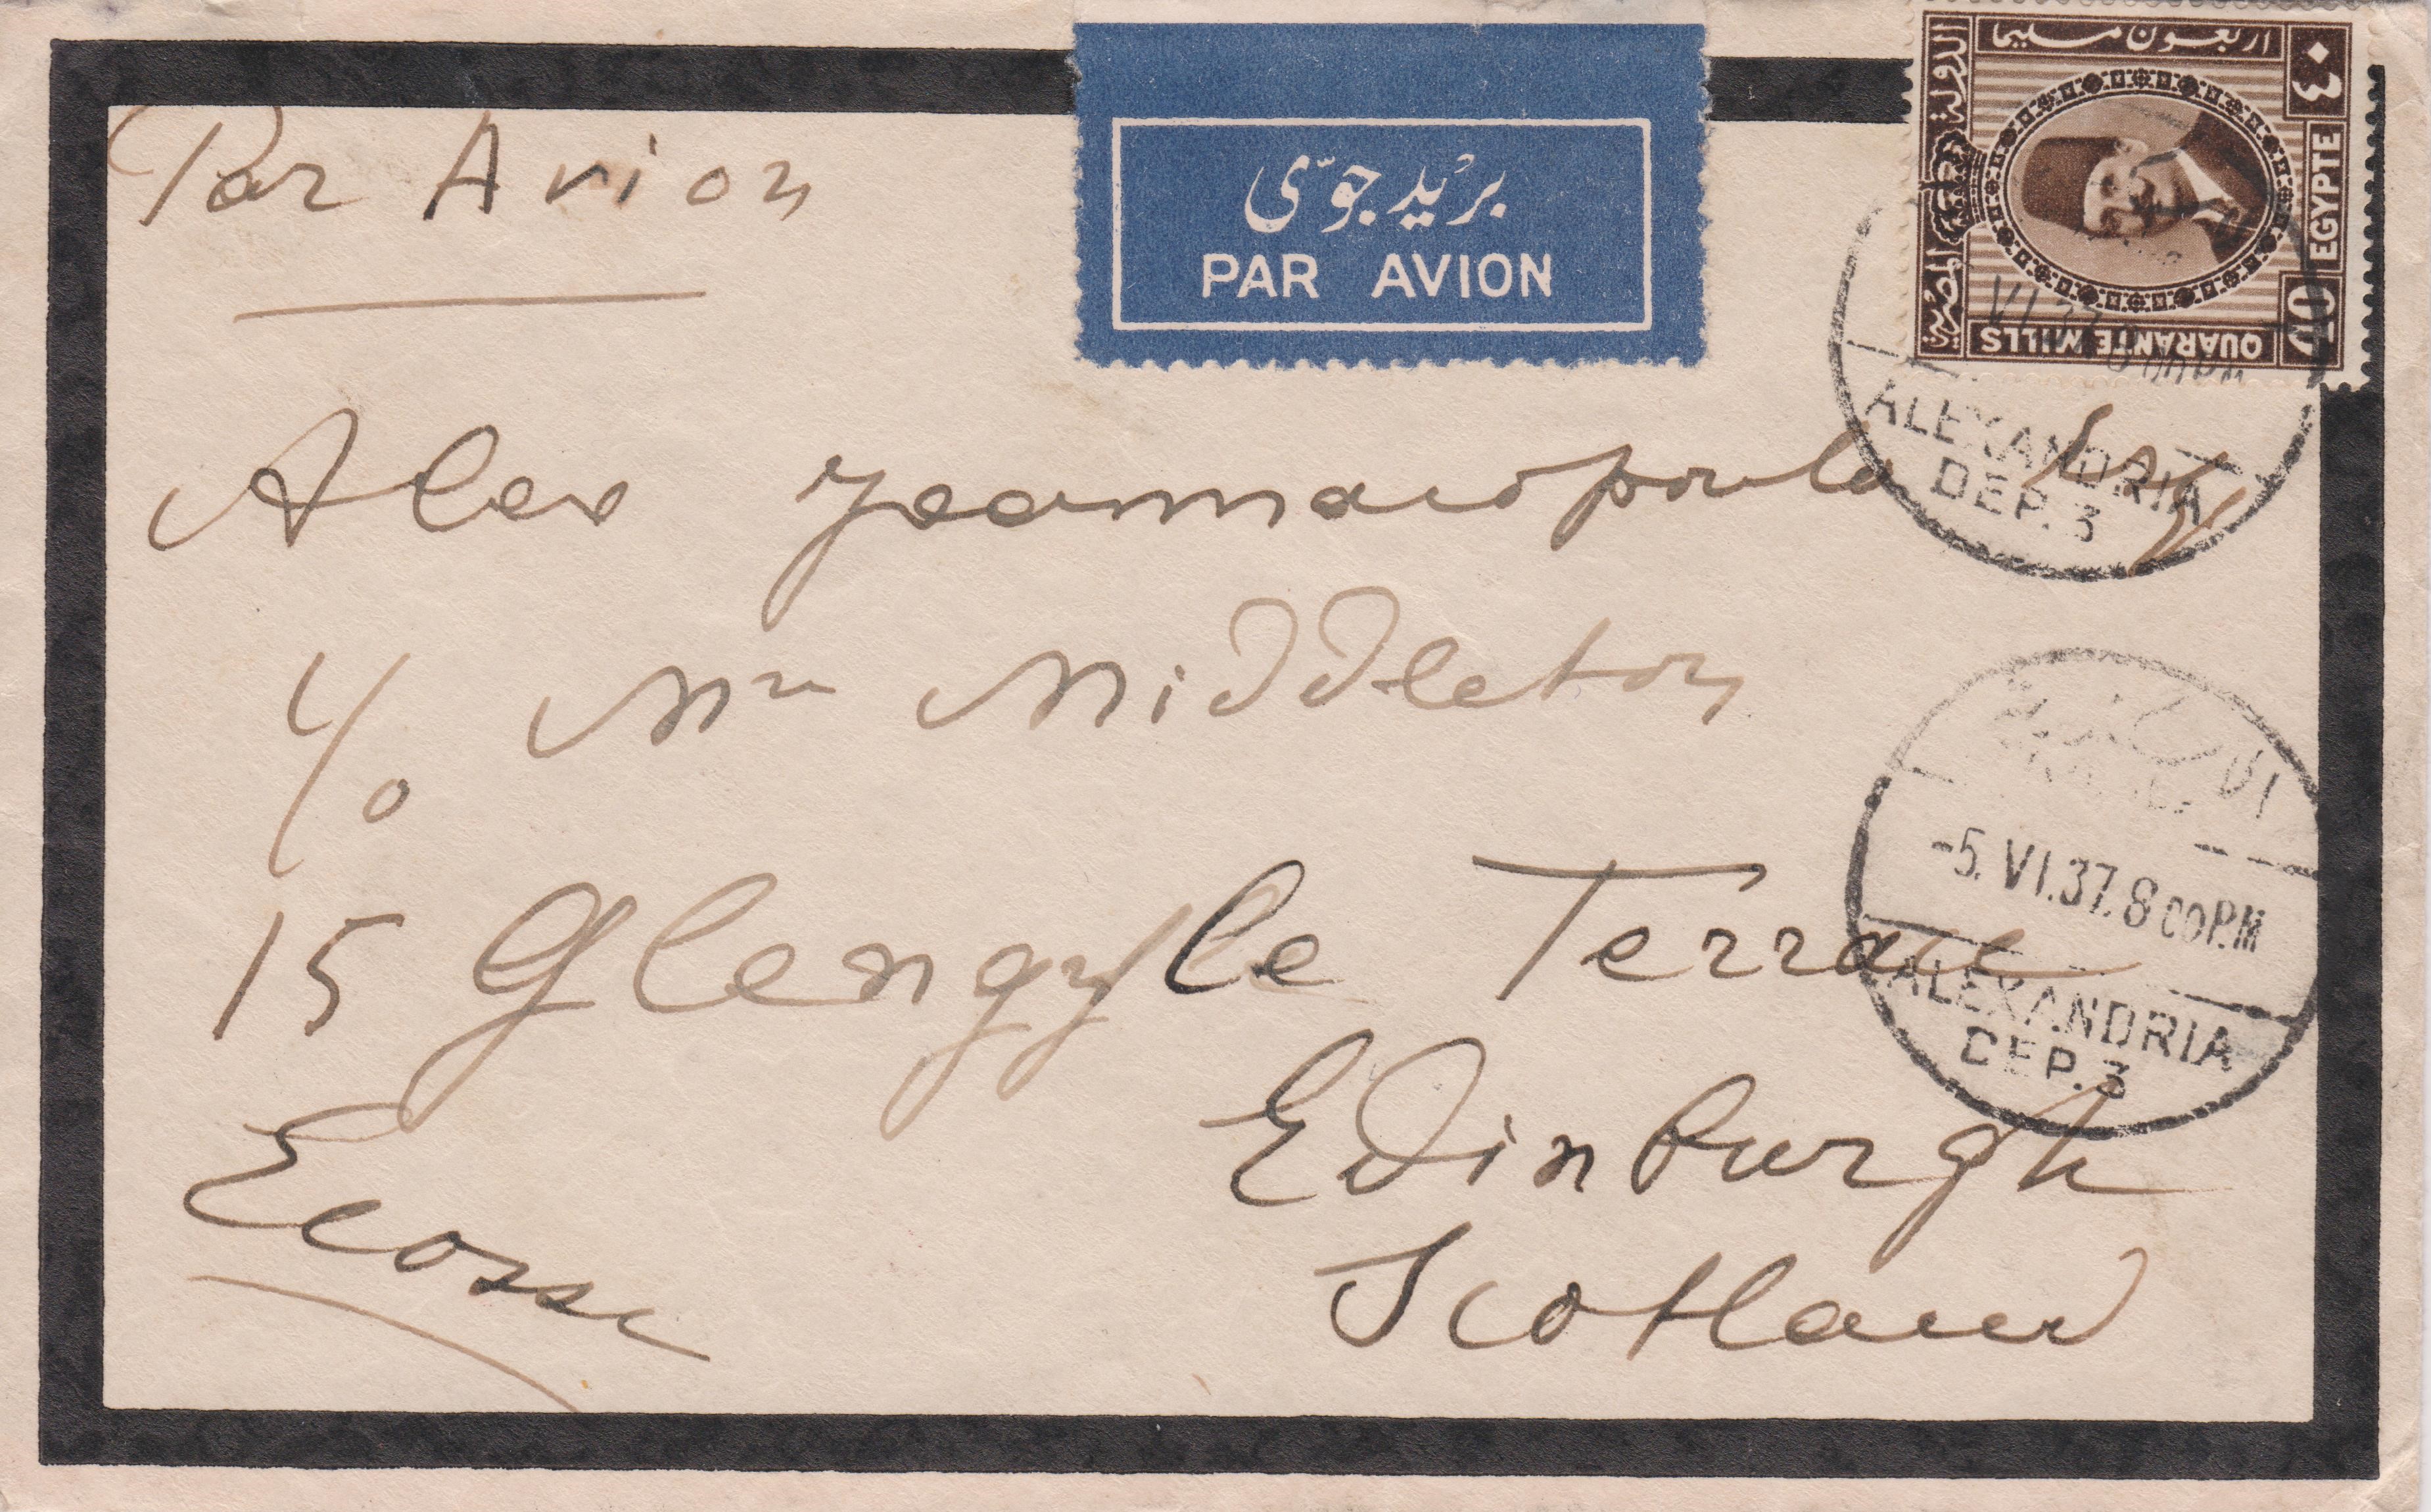 Par Avion
بريد جوّى
PAR AVION
اربعون مليما
الدولة المصرية
٤٠
EGYPTE
40
QUARANTE MILLS
VI.37.8 00PM
ALEXANDRIA
DEP.3
Alex Yoannacopoulo Esq
c/o Mrs Middleton
15 Glengyle Terrace
Edinburgh
Scotland
Ecosse
-5.VI.37.8 00PM
ALEXANDRIA
DEP.3